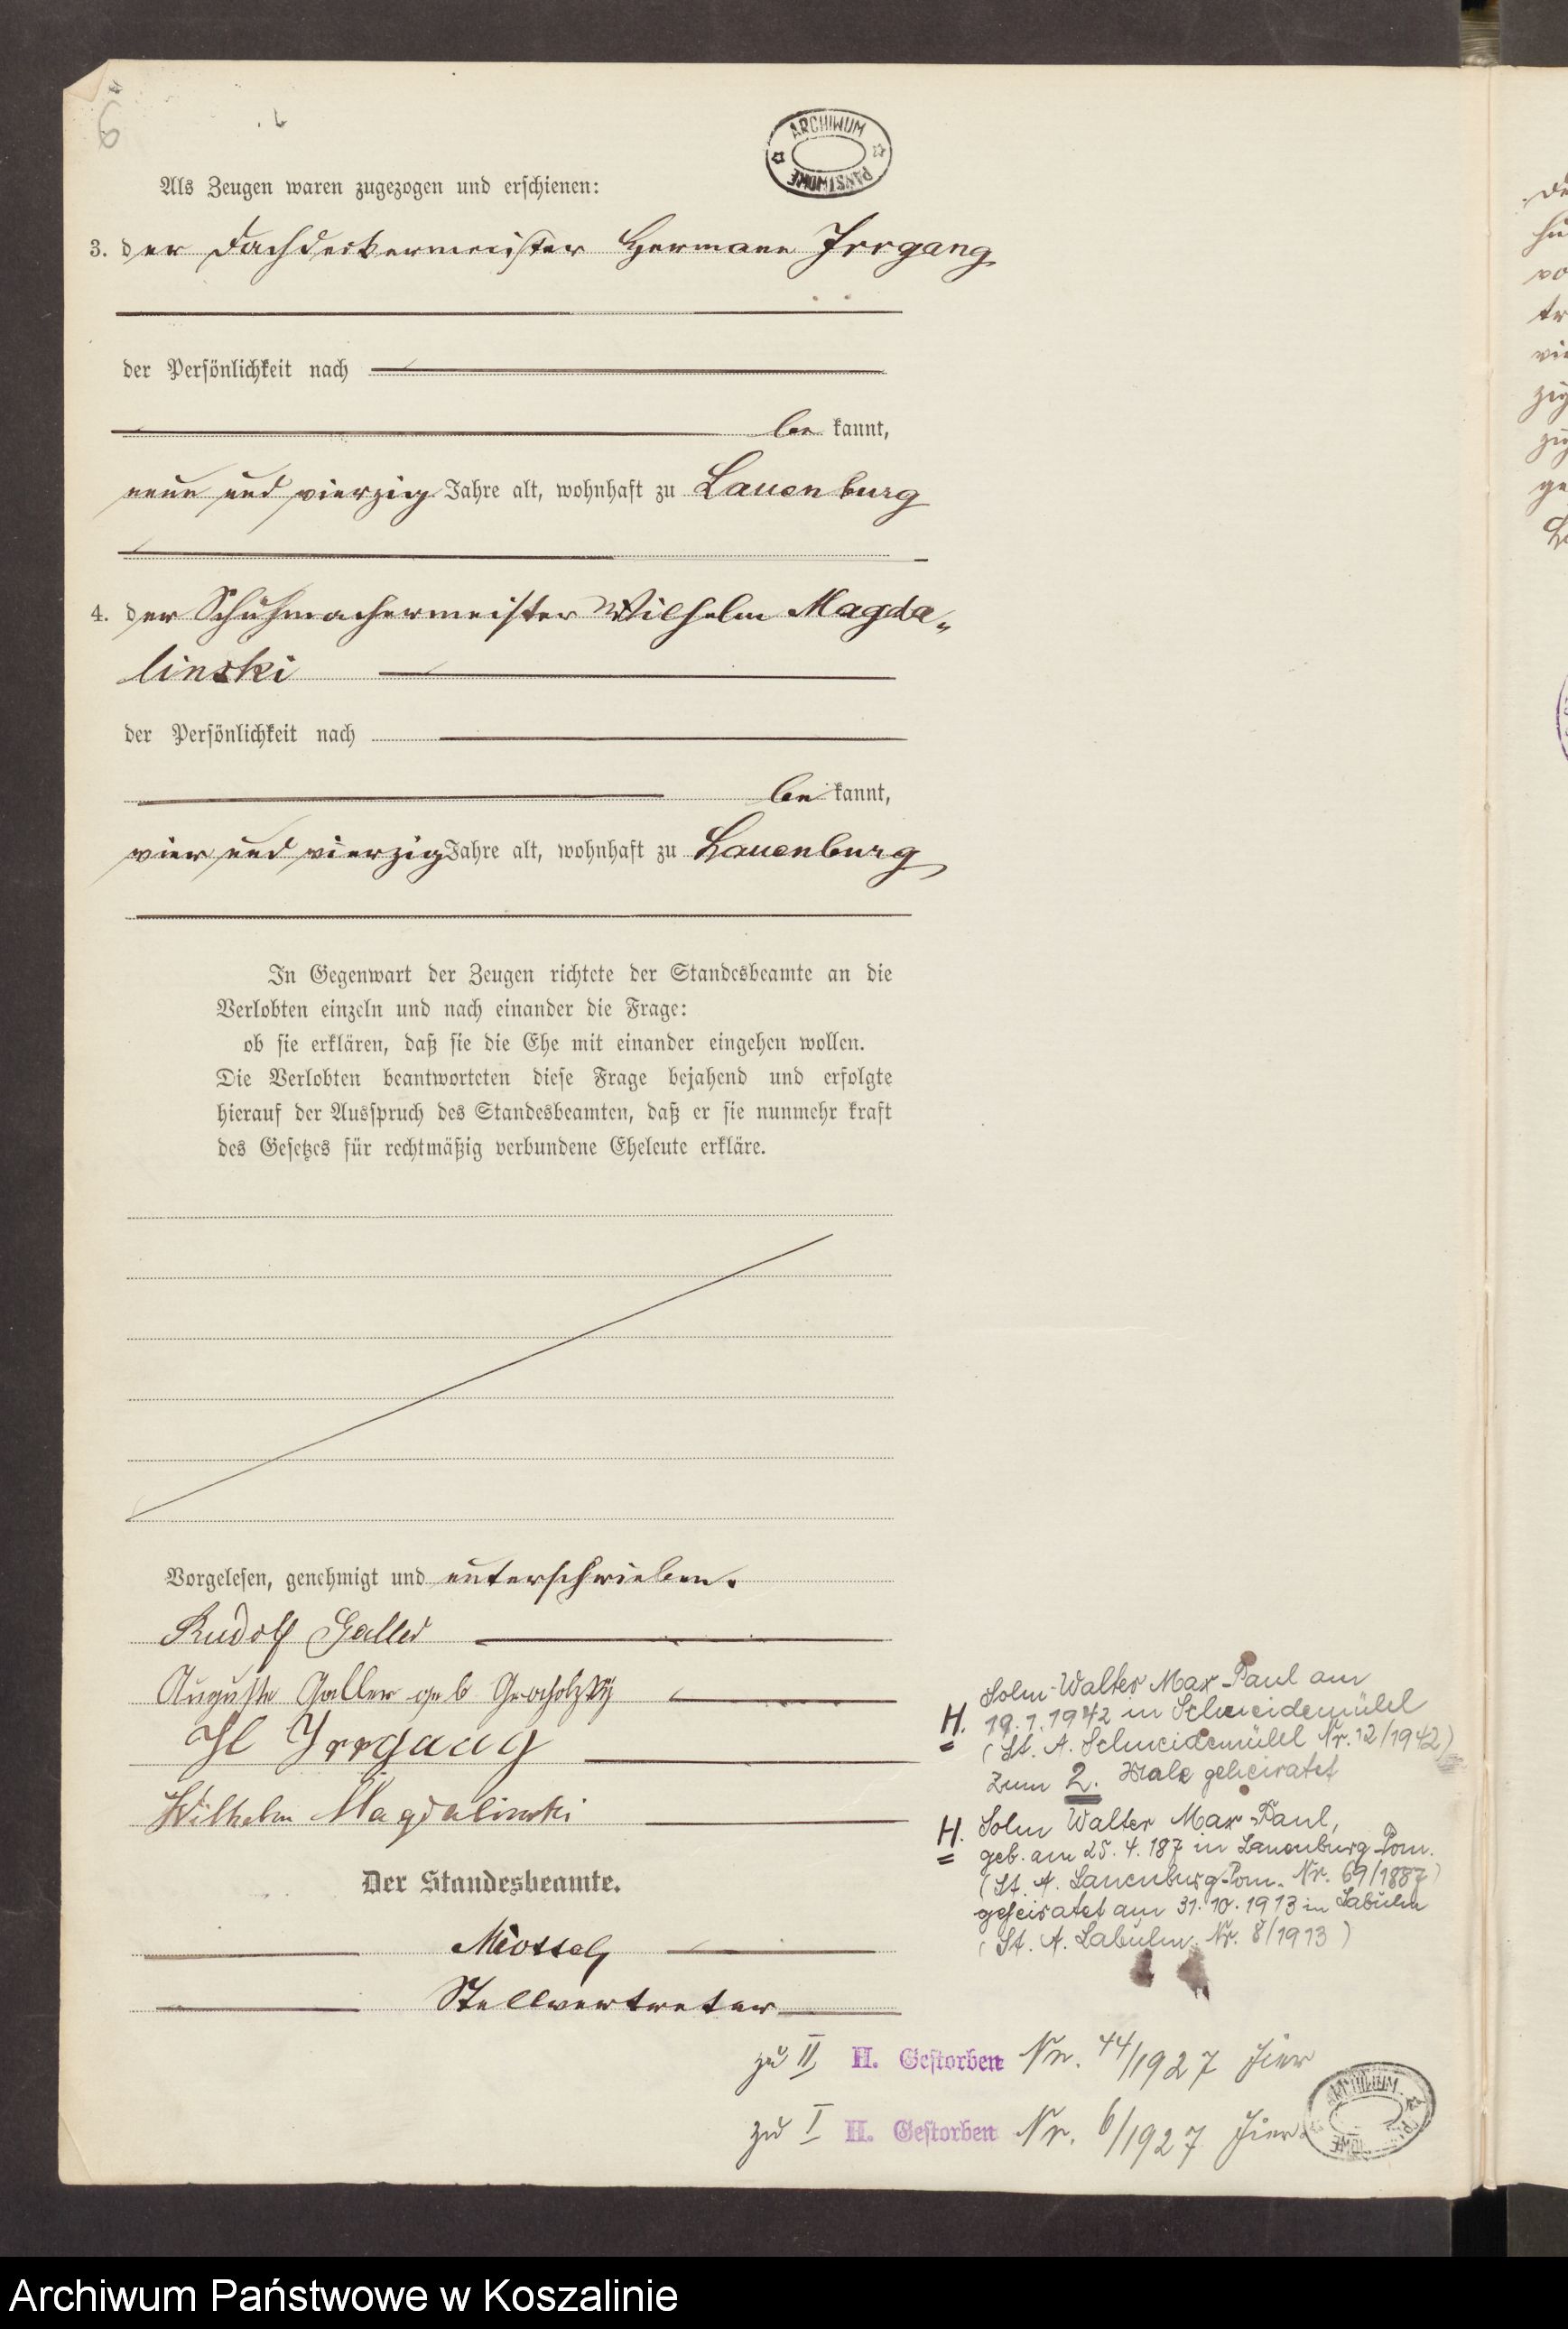 6
ARCHIWUM PAŃSTWOWE
Als Zeugen waren zugezogen und erschienen:
3. der Dachdeckermeister Hermann Irrgang
der Persönlichkeit nach
be kannt,
neun und vierzig Jahre alt, wohnhaft zu Lauenburg
4. der Schuhmachermeister Wilhelm Magda„
linski
der Persönlichkeit nach
be kannt,
vier und vierzig Jahre alt, wohnhaft zu Lauenburg
In Gegenwart der Zeugen richtete der Standesbeamte an die
Verlobten einzeln und nach einander die Frage:
ob sie erklären, daß sie die Ehe mit einander eingehen wollen.
Die Verlobten beantworteten diese Frage bejahend und erfolgte
hierauf der Ausspruch des Standesbeamten, daß er sie nunmehr kraft
des Gesetzes für rechtmäßig verbundene Eheleute erkläre.
Vorgelesen, genehmigt und unterschrieben.
Rudolf Galler
Auguste Galler geb
H Irrgang
Wilhelm Magdalinski
Der Standesbeamte.
Stellvertreter
Sohn Walter Max Paul am
H. 19.1.1942 in Schneidemühl
(St. A. Schneidemühl Nr. 12/1942)
zum 2. Male geheiratet
H. Sohn Walter Max Paul,
geb. am 25.4.187 in Lauenburg Pom.
(St. A. Lauenburg Pom. Nr. 69/1887)
geheiratet am 31.10.1913 in Labuhn
(St. A. Labuhn Nr. 8/1913)
zu II H. Gestorben Nr. 44/1927 hier
zu I H. Gestorben Nr. 6/1927 hier
ARCHIWUM
Archiwum Państwowe w Koszalinie